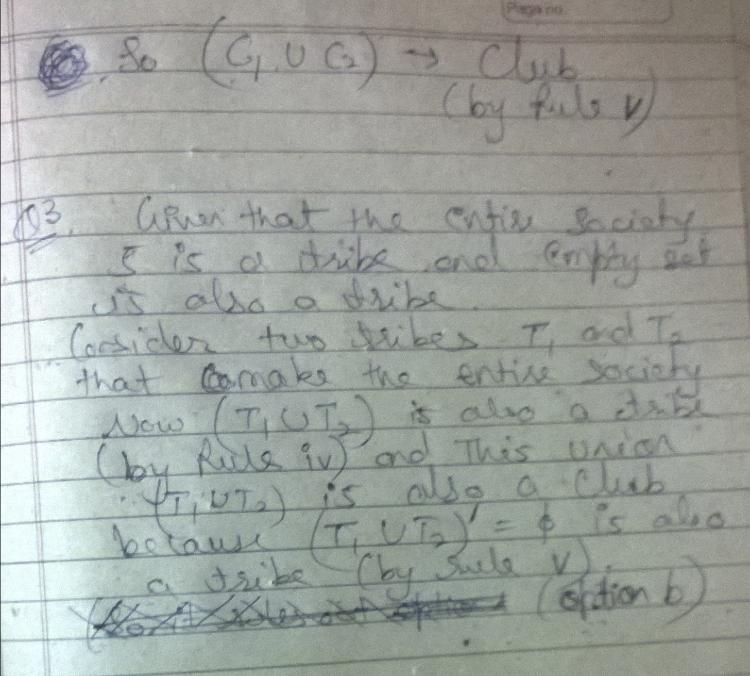 Page no.
So (C1 U C2) → Club
(by Rule V)
Q3. Given that the entire society
S is a tribe and empty set
is also a tribe.
Consider two tribes T1 and T2
that make the entire society
Now (T1 U T2) is also a tribe
(by Rule iv) and This union
(T1 U T2) is also a Club
because (T1 U T2)' = ϕ is also
a tribe (by rule V).
(option b)